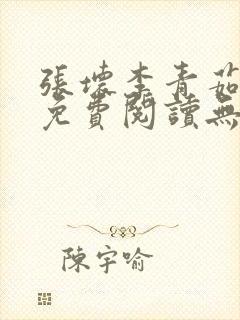 張壞李青茹
免費閱讀無
陳宇喻